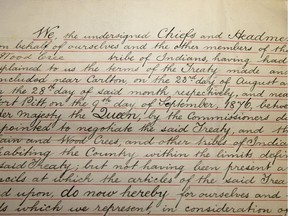 We, the undersigned Chiefs and Headmen
on behalf of ourselves and the other members of the
Wood Cree tribe of Indians, having had
explained to us the terms of the Treaty made and
concluded near Carlton, on the 23rd day of August
the 28th day of said month respectively, and near
Fort Pitt on the 9th day of September, 1876, between
Her Majesty the Queen, by the Commissioners
appointed to negotiate the said Treaty, and the
Plain and Wood Crees, and other tribes of Indians
inhabiting the Country within the limits defined
Treaty; but not having been present at
Councils at which the articles of the said Treaty
agreed upon, do now hereby for ourselves and
which we represent, in consideration of